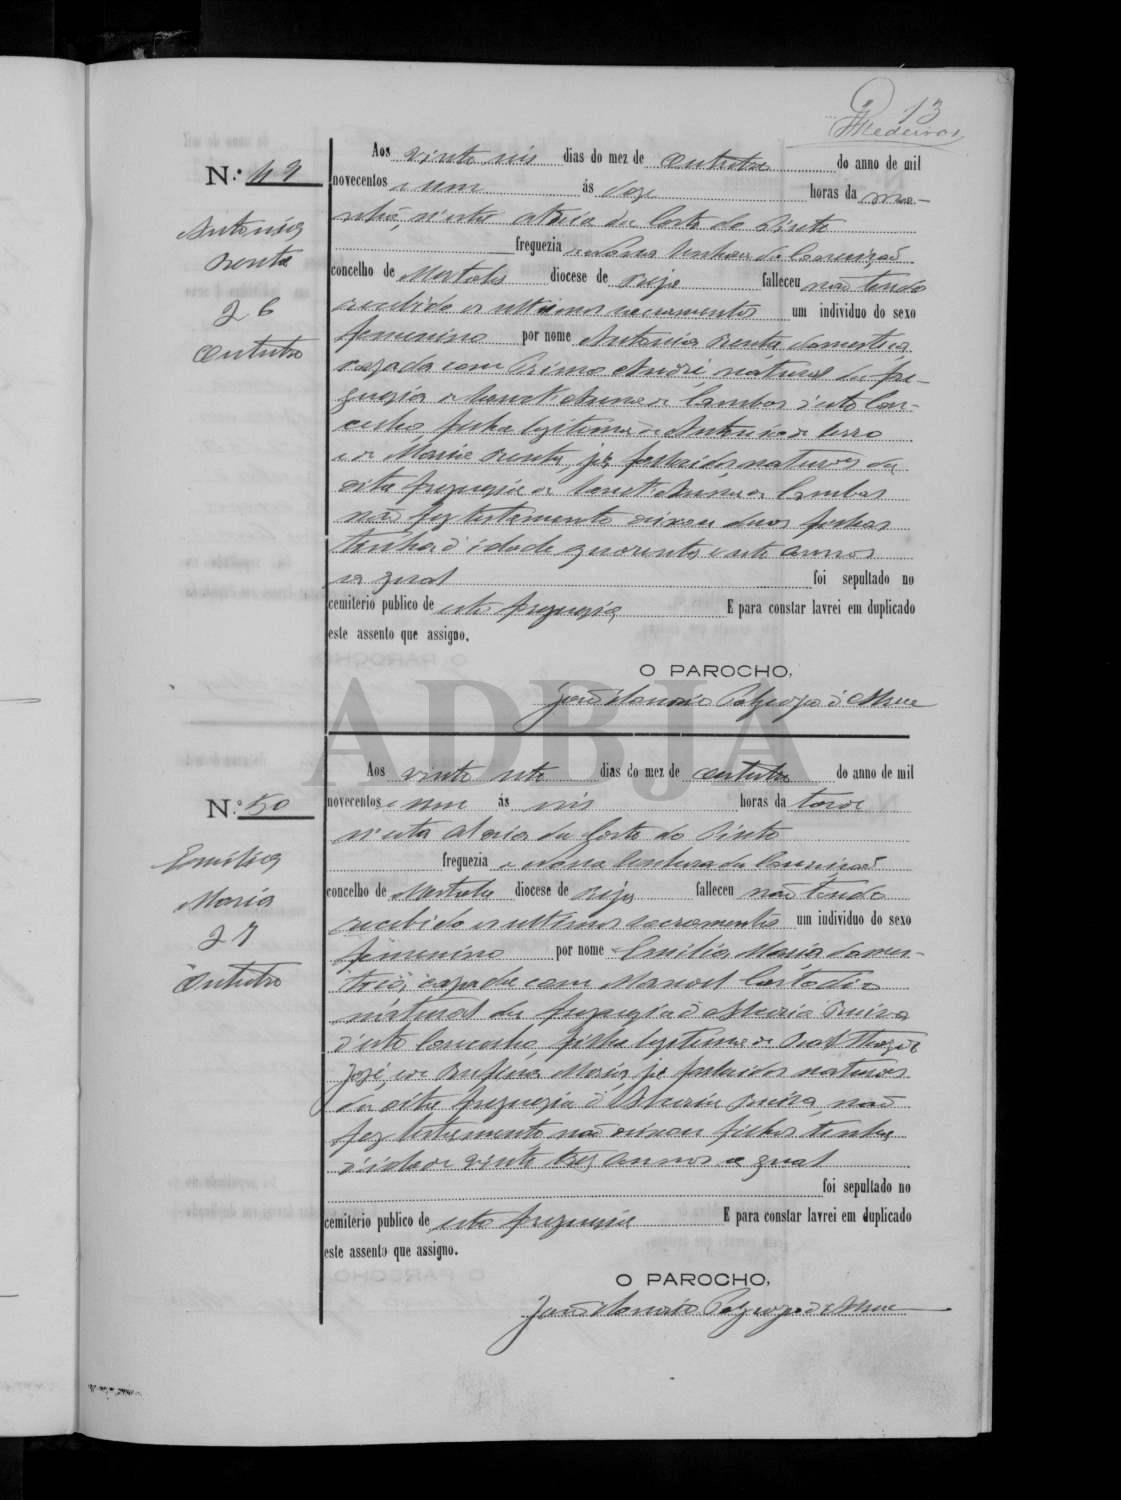 13
Medeiros
N.º 49
Antonia
Benta
26
Outubro
Aos vinte seis dias do mez de Outubro do anno de mil
novecentos e um ás doze horas da ma-
nhã, n'esta Aldeia da Corte do Pinto
freguezia de Nossa Senhora da Conceição
concelho de Mertola diocese de Beja falleceu não tendo
recebido os ultimos sacramentos um individuo do sexo
femenino por nome Antonia Benta, domestica
cazada com Primo André, natural da fre-
guezia de Sanct'Anna de Cambas d'esto Con-
celho filha legitima de Antonio
e de Maria Benta, já fallecidos, naturaes da
dita freguezia de Sanct'Anna de Cambas
não fez testamento deixou duos filhos
tinha d'idade quarenta e sete annos
foi sepultado no
cemiterio publico de esta freguezia E para constar lavrei em duplicado
este assento que assigno.
O PAROCHO,
João
ADBJA
N.º 50
Emilia
Maria
27
Outubro
Aos vinte sete dias do mez de Outubro do anno de mil
novecentos e um ás seis horas da tarde
n'esta Aldeia da Corte do Pinto
freguezia de Nossa Senhora da Conceição
concelho de Mertola diocese de Beja falleceu não tendo
recebido os ultimos sacramentos um individuo do sexo
femenino por nome Emilia Maria domes-
tica, cazada com Manoel Custodio
natural da freguezia d'
d'esto Concelho, filha legitima de
José, e de Rufina Maria, já fallecidos naturaes
da dita freguezia d' não
fez testamento, não deixou filhos, tinha
d'idade vinte tres annos
foi sepultado no
cemiterio publico de esta freguezia E para constar lavrei em duplicado
este assento que assigno.
O PAROCHO,
João